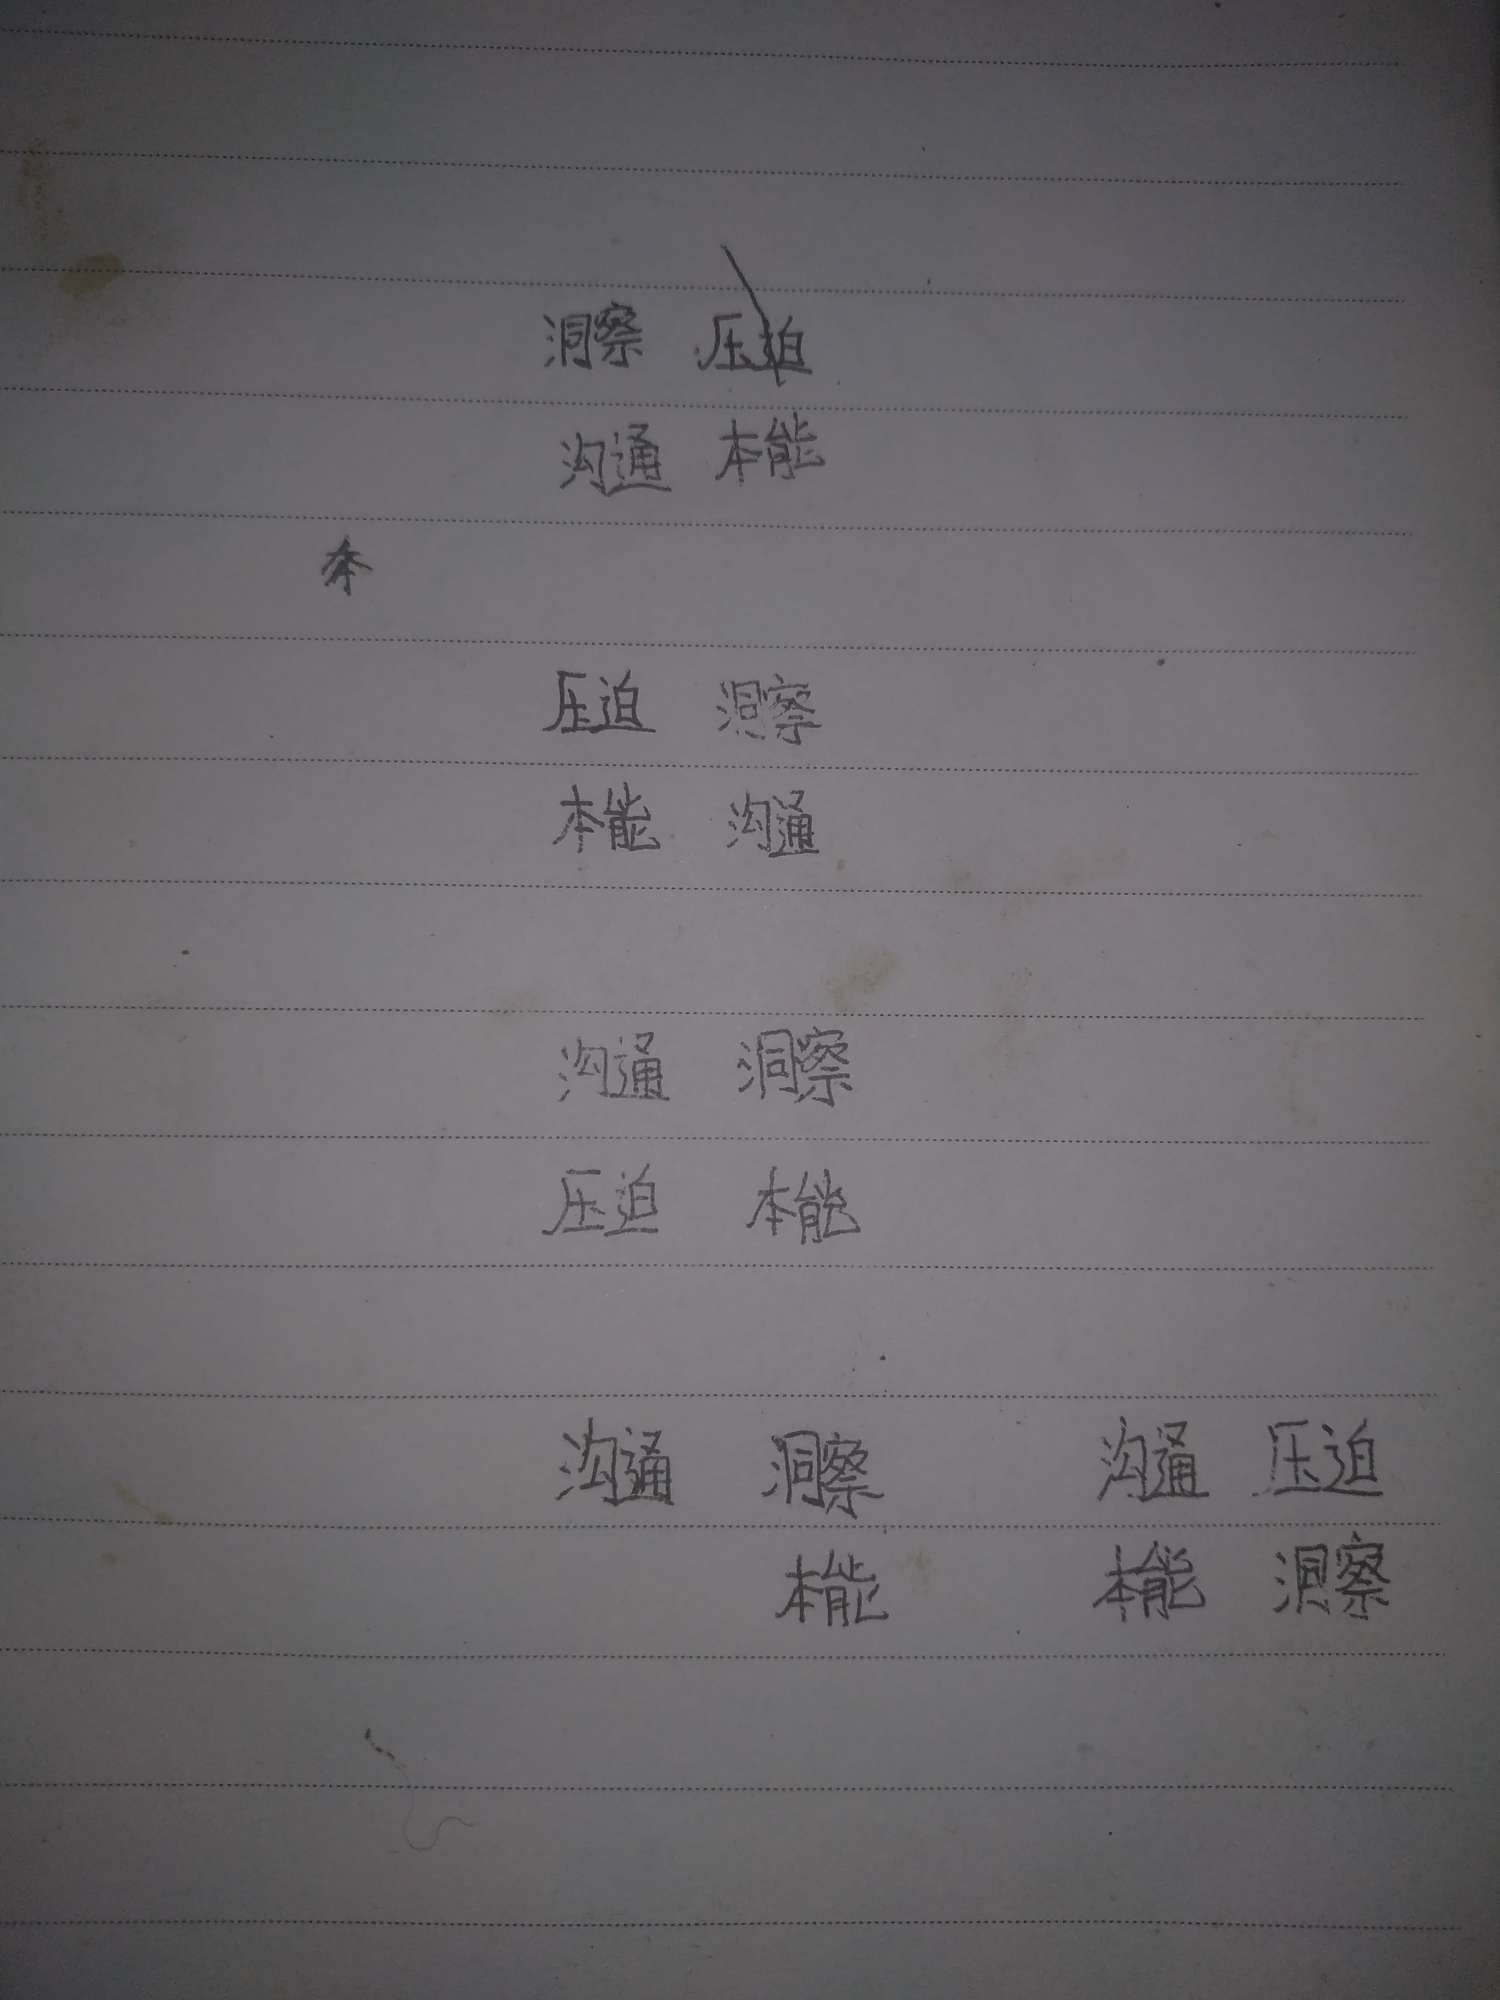 洞察 压迫
沟通 本能
本
压迫 洞察
本能 沟通
沟通 洞察
压迫 本能
沟通 洞察 沟通 压迫
本能 本能 洞察